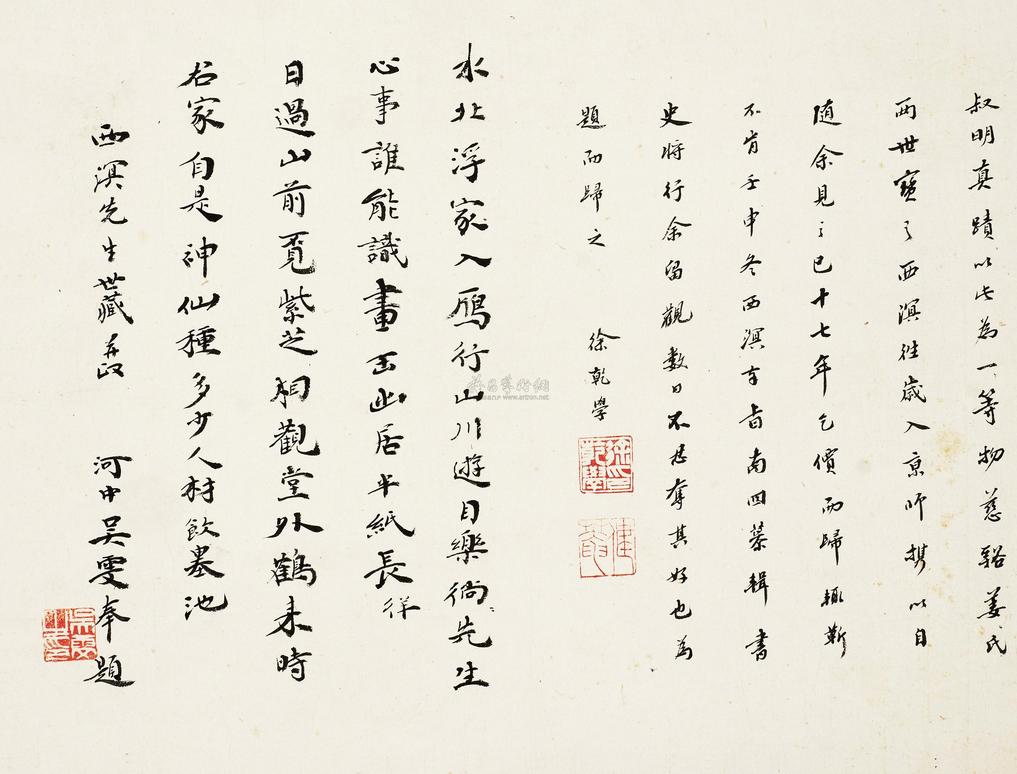 叔明真蹟以此為一等物慈谿姜氏
兩世寶之西溟往歲入京師攜以自
隨余見之已十七年乞償而歸輒靳
不肯壬申冬西溟奉旨南回纂輯書
史將行余留觀數日不忍奪其好也為
題而歸之
徐乾學
水北浮家入鴈行山川遊目樂徜徉先生
心事誰能識畫至山居半紙長
日過山前覓紫芝祠觀堂外鶴來時
右家自是神仙種多少人材飲墨池
西溟先生世藏
河中吳雯奉題